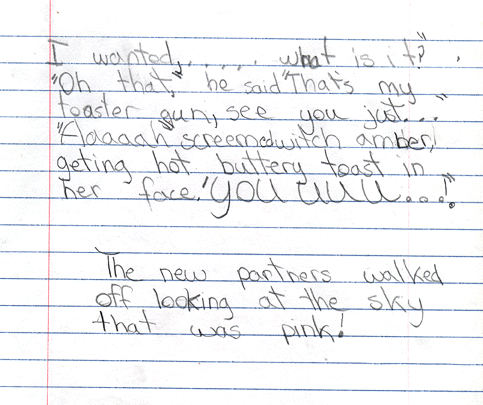 I wanted,..... what is it?" .
"Oh that," he said "That's my
toaster gun, see you just..."
"Aaaaah" screemed witch amber,
geting hot buttery toast in
her face! "you uuu...!"
The new partners walked
off looking at the sky
that was pink!